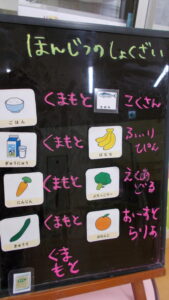 ほんじつのしょくざい
ごはん
くまもと
こくさん
ぎゅうにゅう
くまもと
ばなな
ふぃり
ぴん
にんじん
くまもと
ブロッコリー
えくあ
どる
きゅうり
くまもと
おーすと
らりあ
くま
もと